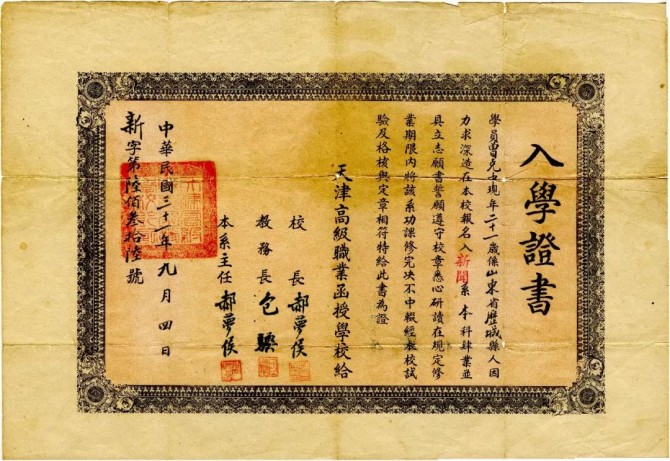 入學證書
學員曾克中現年二十一歲係山東省歷城縣人因
力求深造在本校報名入新聞系本科肄業並
具立志願書誓願遵守校章悉心研讀在規定修
業期限內將該系功課修完决不中報經本校試
驗及格核與定章相符特給此書為證
天津高級職業函授學校給
校長郝夢侯
教務長包
本系主任郝夢侯
中華民國三十一年九月四日
新字第陸佰叁拾陸號